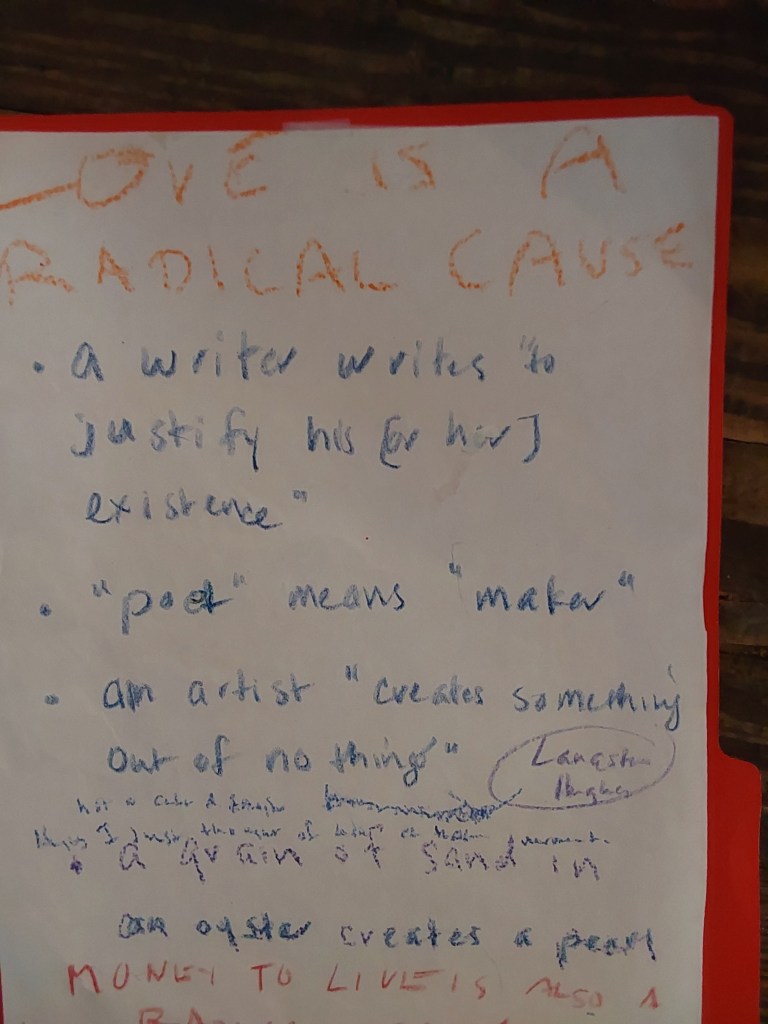 LOVE IS A
RADICAL CAUSE
• a writer writes "to
justify his [or her]
existence"
• "poet" means "maker"
• an artist "creates something
out of nothing"
Langston
Hughes
• a grain of sand in
an oyster creates a pearl
MONEY TO LIVE IS ALSO A